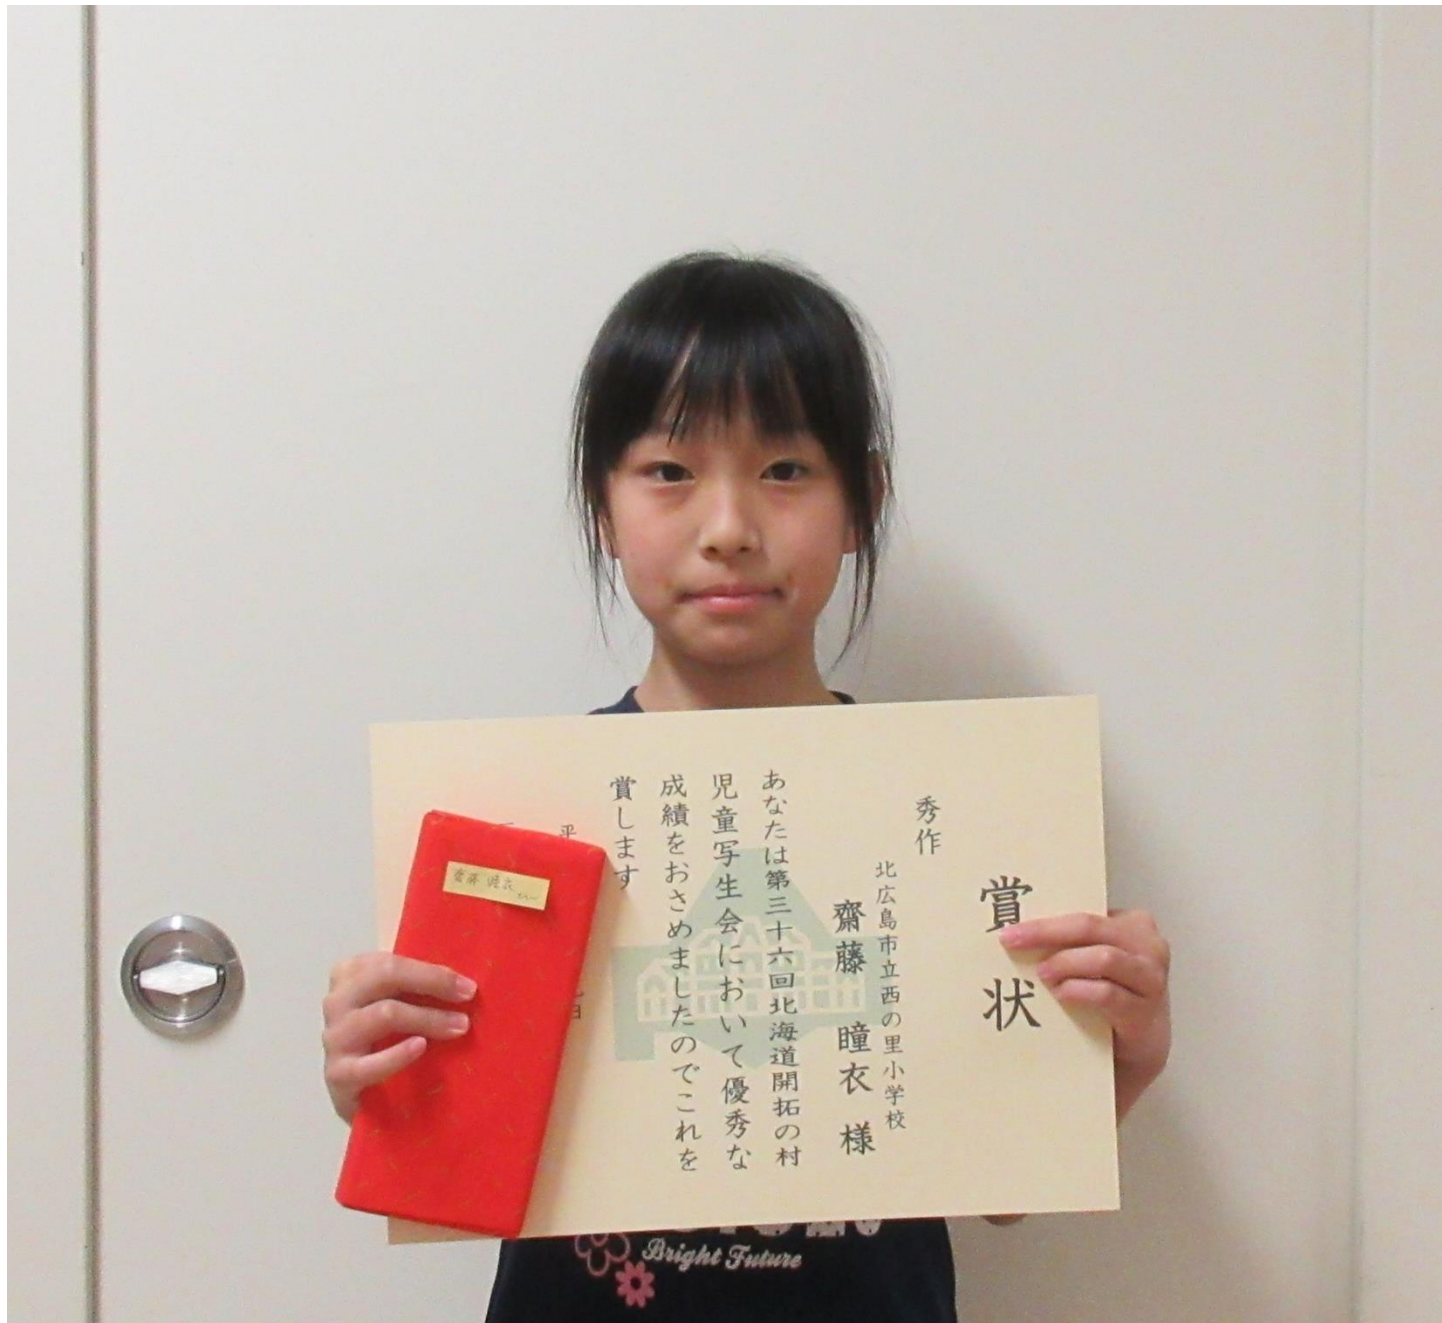 賞状
秀作
北広島市立西の里小学校
齋藤 瞳衣 様
あなたは第三十六回北海道開拓の村
児童写生会において優秀な
成績をおさめましたのでこれを
賞します
平
日
齋藤 瞳衣
Bright Future